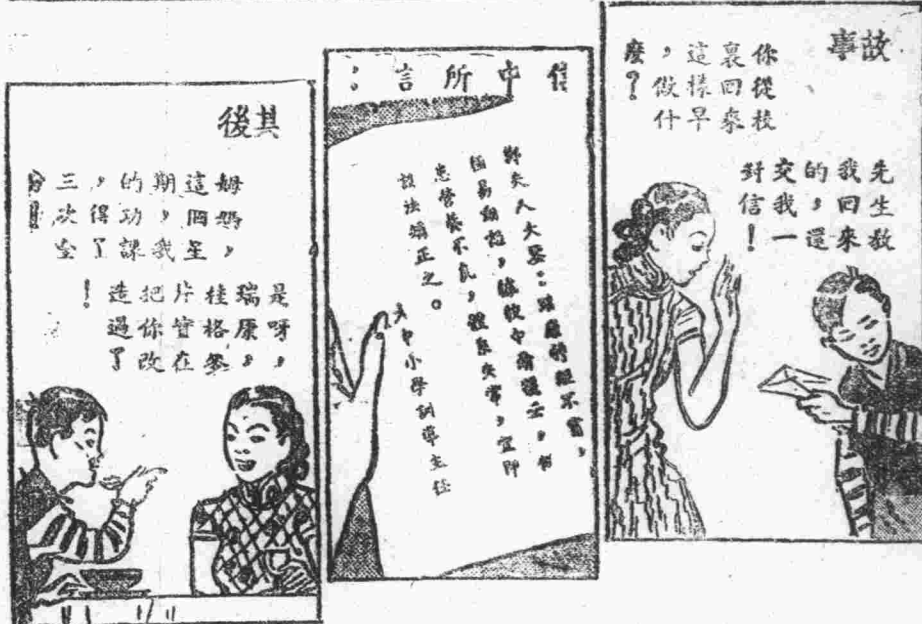 故事
你從校
裏回來
這樣早
，做什
麼？
先生教
我回來
的，還
交我一
封信！
信中所言：
夫人大鑒：瑞康精神不
極易動怒，據校中看護云，係
患營養不良，體氣失常，宜即
設法矯正之。
大中小學訓導主任
其後
姆媽，
這個星
期，我
的功課
，得了
三次全
分！
是呀，
瑞康，
桂格麥
片實在
把你改
造過了
！